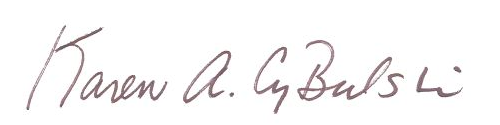 Karen A. CyBulski